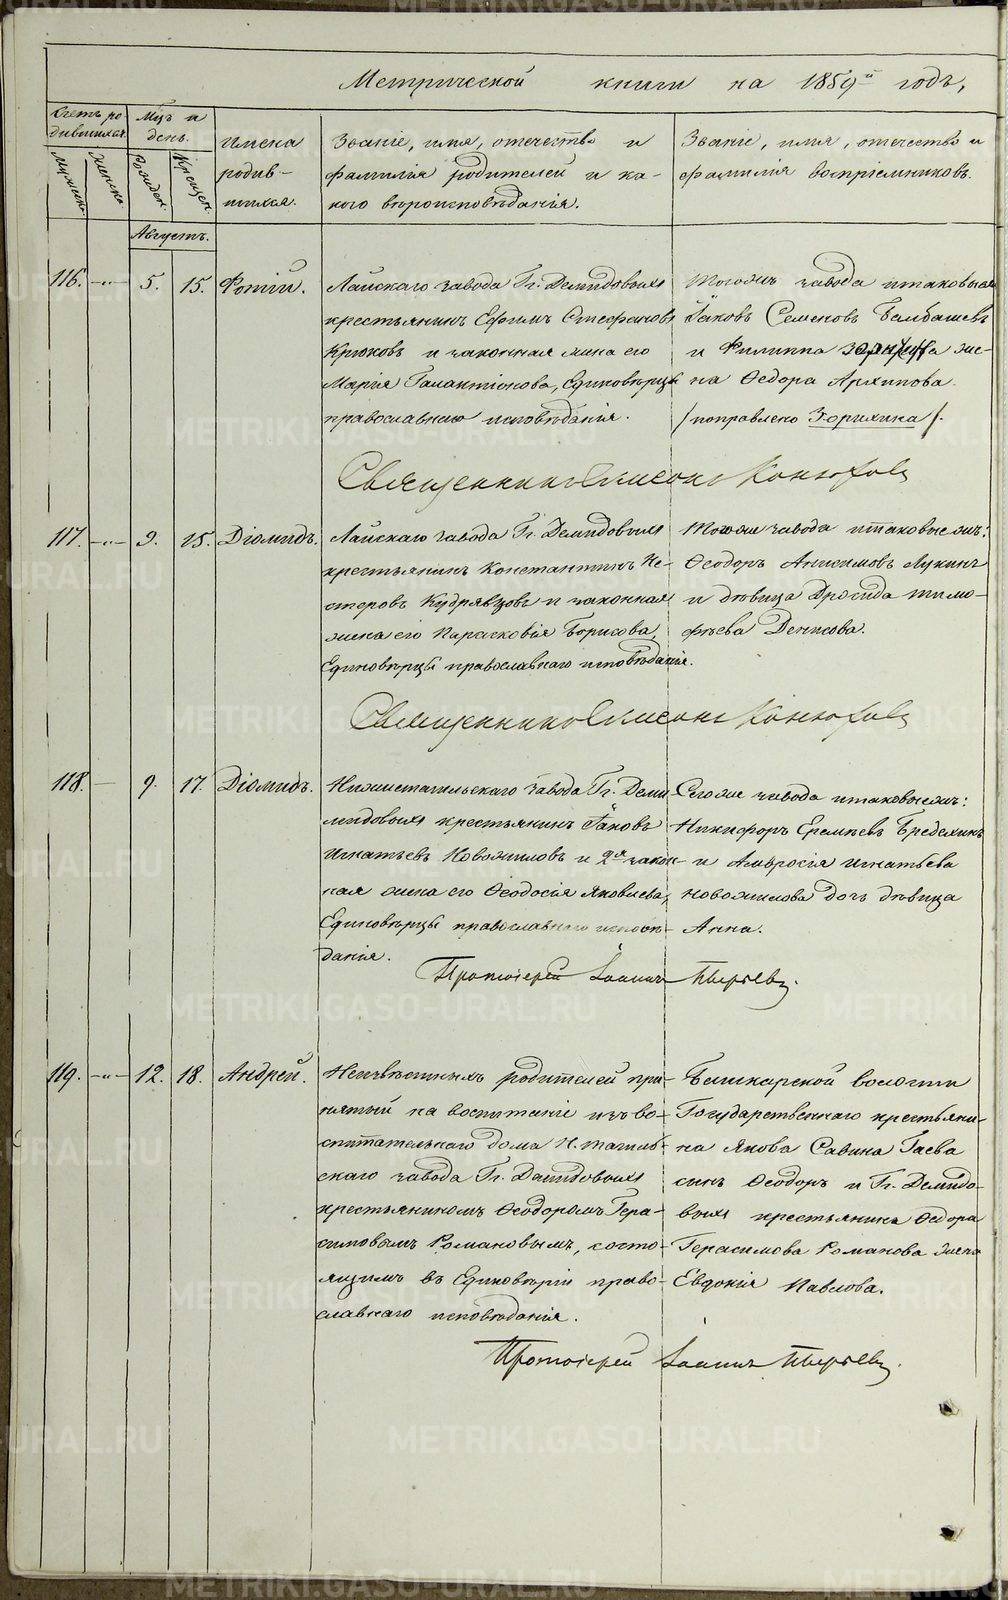 Метрической книги на 1859й годъ,
Счетъ родившихся.
Мужеска.
Женска.
Мцъ и день.
Рожден.
Крещен.
Имена родив-
шихся.
Званіе, имя, отечество и
фамилія родителей и ка-
кого вѣроисповѣданія.
Званіе, имя, отечество и
фамилія воспріемниковъ.
Августъ.
116. -"- 5. 15. Фотій.
Лайскаго завода Гг. Демидовыхъ
крестьянинъ Ефимъ Стефановъ
Крюковъ и законная жена его
Марія Галактіонова, Единовѣрцы
православнаго исповѣданія.
Тогожъ завода и таковыежъ
Іаковъ Семеновъ Балбашевъ
и Филиппа Зорихина же-
на Ѳедора Архипова.
/поправлено Зорихина/.
Священникъ Симеонъ Конюховъ
117. -"- 9. 15. Діомидъ.
Лайскаго завода Гг. Демидовыхъ
крестьянинъ Константинъ Не-
стеровъ Кудрявцовъ и законная
жена его Парасковія Борисова,
Единовѣрцы православнаго исповѣданія.
Тогоже завода и таковыежъ:
Ѳеодоръ Анисимовъ Лукинъ
и дѣвица Дросида Тимо-
фѣева Денисова.
Священникъ Симеонъ Конюховъ
118. - 9. 17. Діомидъ.
Нижнетагильскаго завода Гг. Деми-
мидовыхъ крестьянинъ Іаковъ
Игнатьевъ Новожиловъ и 2я закон-
ная жена его Ѳеодосія Яковлева,
Единовѣрцы православнаго исповѣ-
данія.
Сегоже завода и таковыежъ:
Никифоръ Еремѣевъ Бределинъ
и Амвросія Игнатьева
Новожилова дочь дѣвица
Анна.
Протоіерей Іоаннъ Пырьевъ.
119. -"- 12. 18. Андрей.
Неизвѣстныхъ родителей при-
нятый на воспитаніе изъ во-
спитательнаго дома Н. Тагиль-
скаго завода Гг. Демидовыхъ
крестьяниномъ Ѳеодоромъ Гера-
симовымъ Романовымъ, состо-
ящимъ въ Единовѣріи право-
славнаго исповѣданія.
Башкарской волости
Государственнаго крестьяни-
на Якова Савина Гаева
сынъ Ѳеодоръ и Гг. Демидо-
выхъ крестьянина Ѳедора
Герасимова Романова жена
Евдокія Павлова.
Протоіерей Іоаннъ Пырьевъ.
METRIKI.GASO-URAL.RU